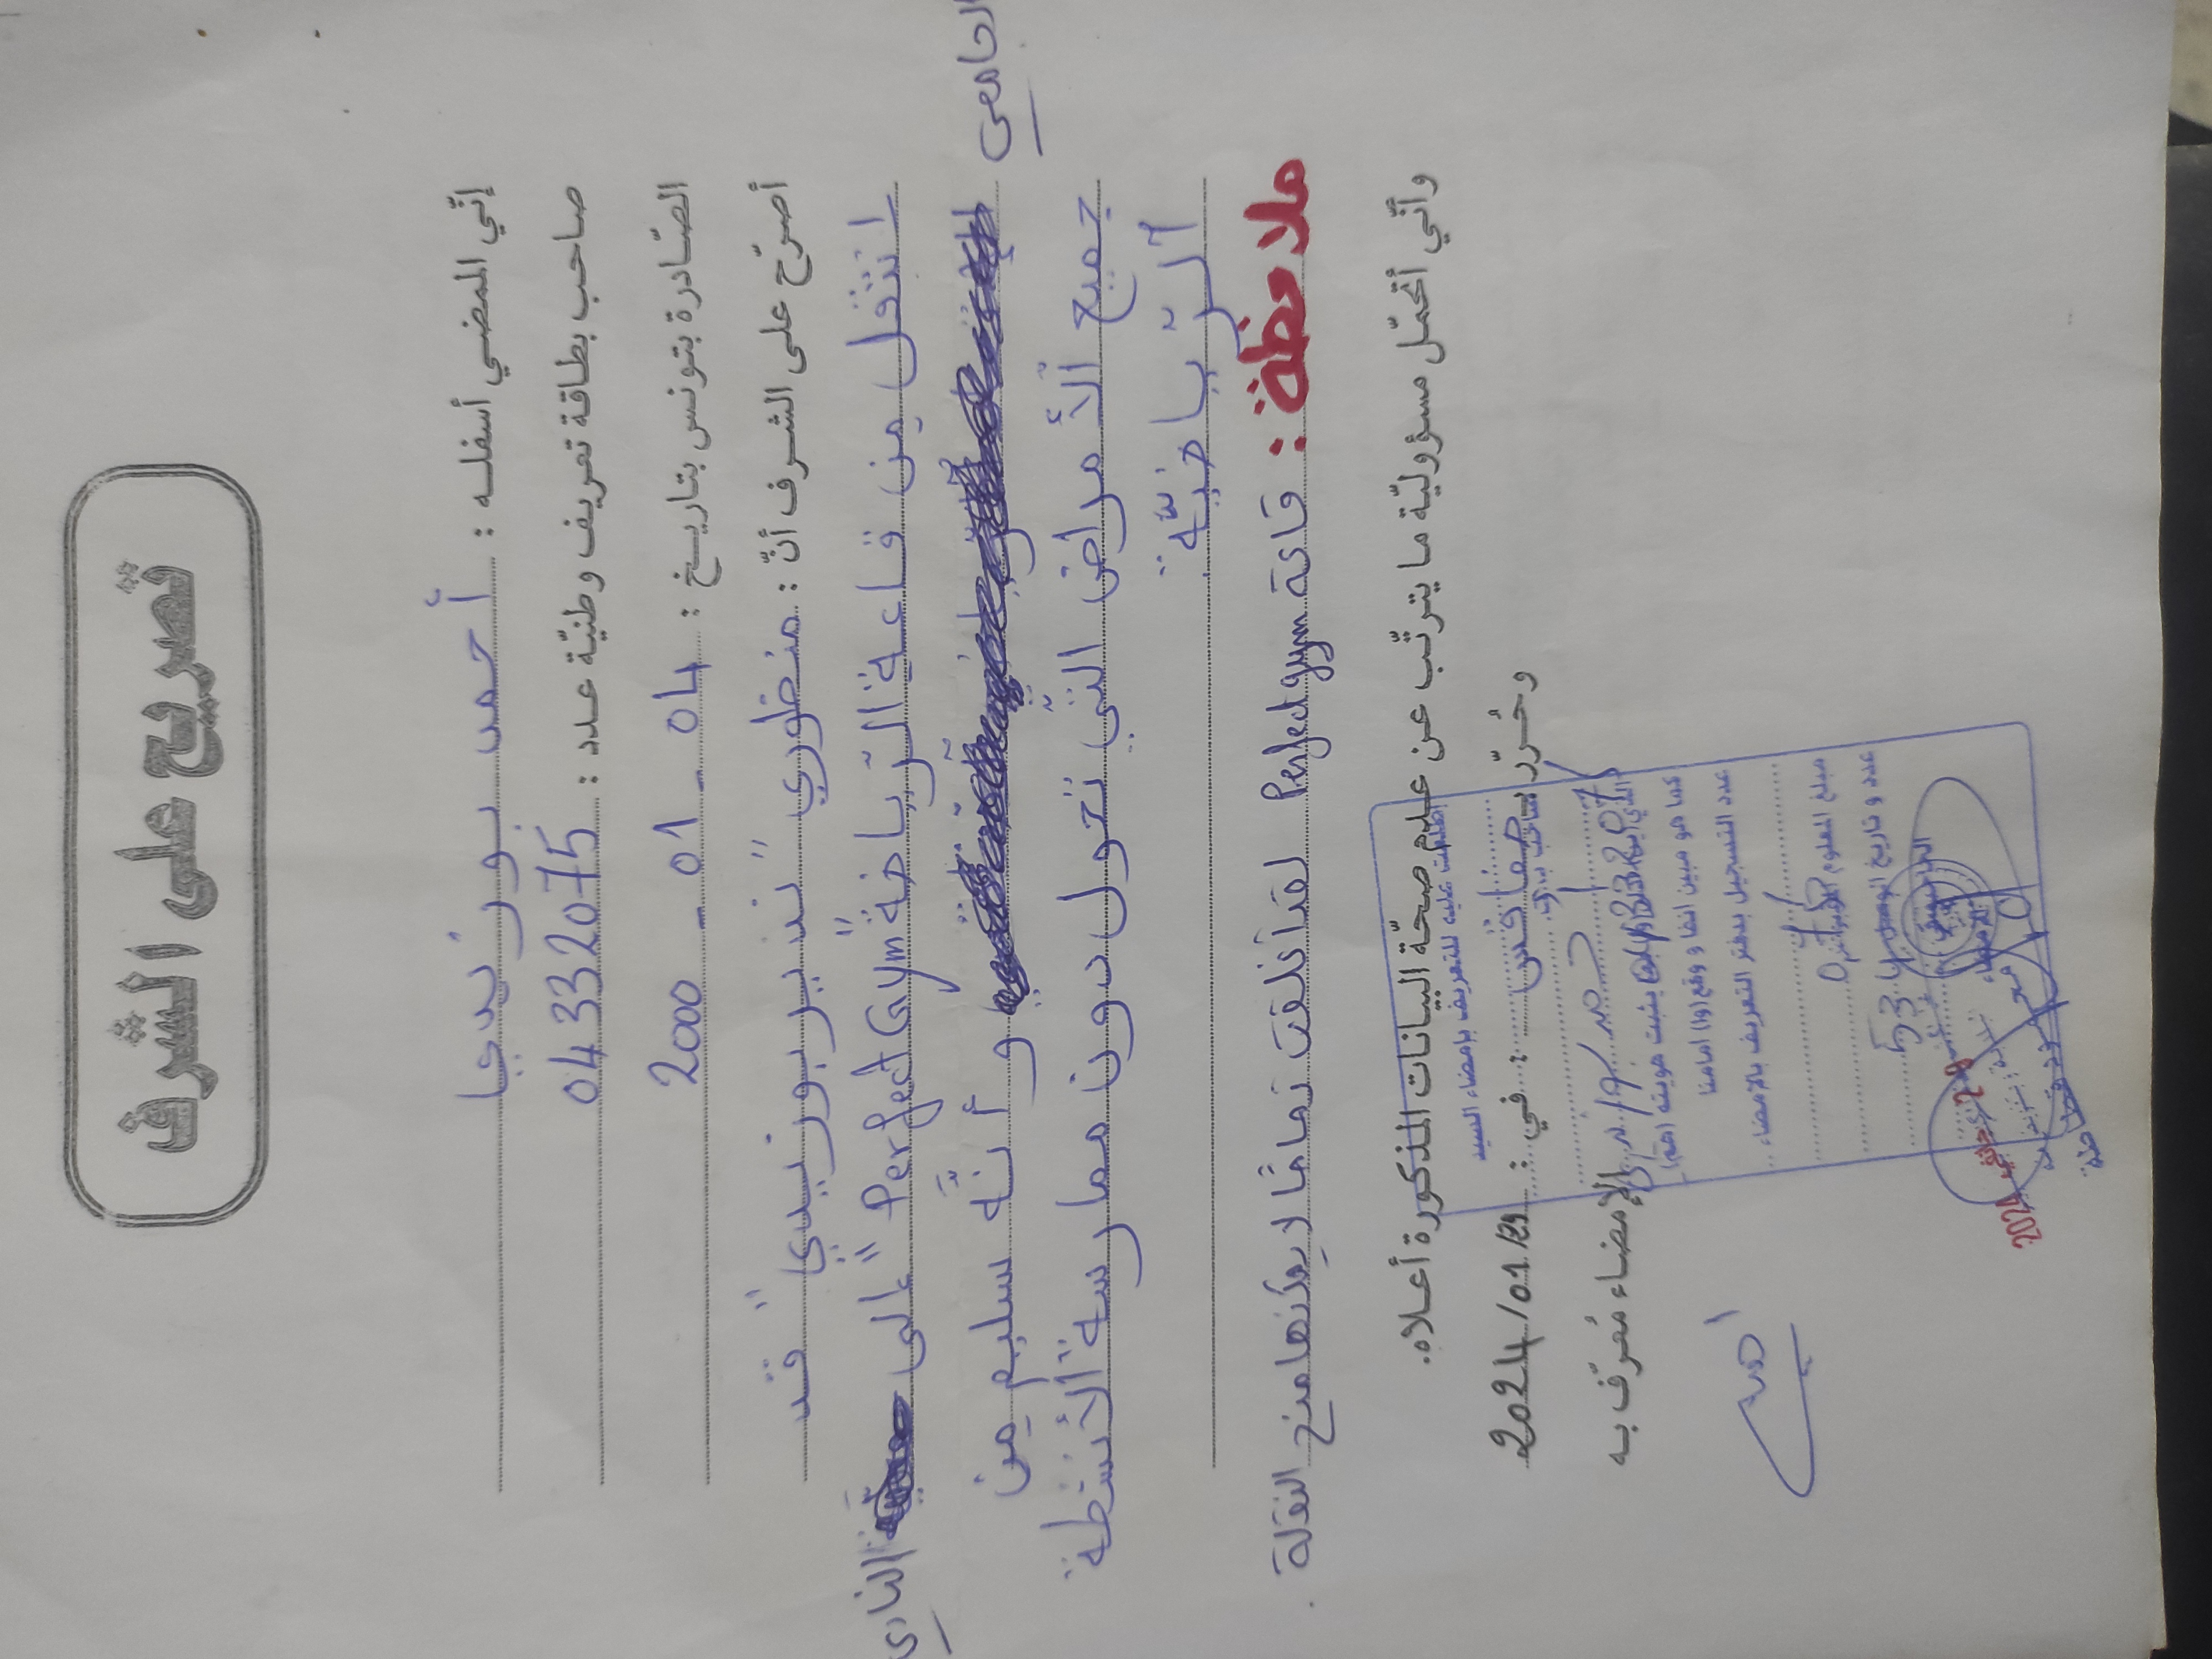 تصريح على الشرف
إنّي الممضي أسفله : أحمد بوزيدي
صاحب بطاقة تعريف وطنيّة عدد : 04332075
الصّادرة بتونس بتاريخ : 04 - 01 - 2000
أصرّح على الشرف أنّ : منظوري "نذير بوزيدي" قد
انتقل من قاعة الرّياضة "Perfect Gym" إلى النادي
الجامعي
و أنّه سليم من
جميع الأمراض التي تحول دون ممارسة الأنشطة
الرّياضيّة.
ملاحظة : قاعة Perfect gym لقد أغلقت تمامًا لا يمكنها منح النقلة .
وأنّي أتحمّل مسؤوليّة ما يترتّب عن عدم صحّة البيانات المذكورة أعلاه.
وحُرّر في : صفاقس : 2024/01/29
الإمضاء مُعرّف به
اطلعت عليه للتعريف بإمضاء السيد
صاحب ب.ت.و
كما هو مبين أعلاه و وقع (وا) أمامنا
عدد التسجيل بدفتر التعريف بالامضاء
مبلغ المعلوم
عدد و تاريخ الوصل
534
2024